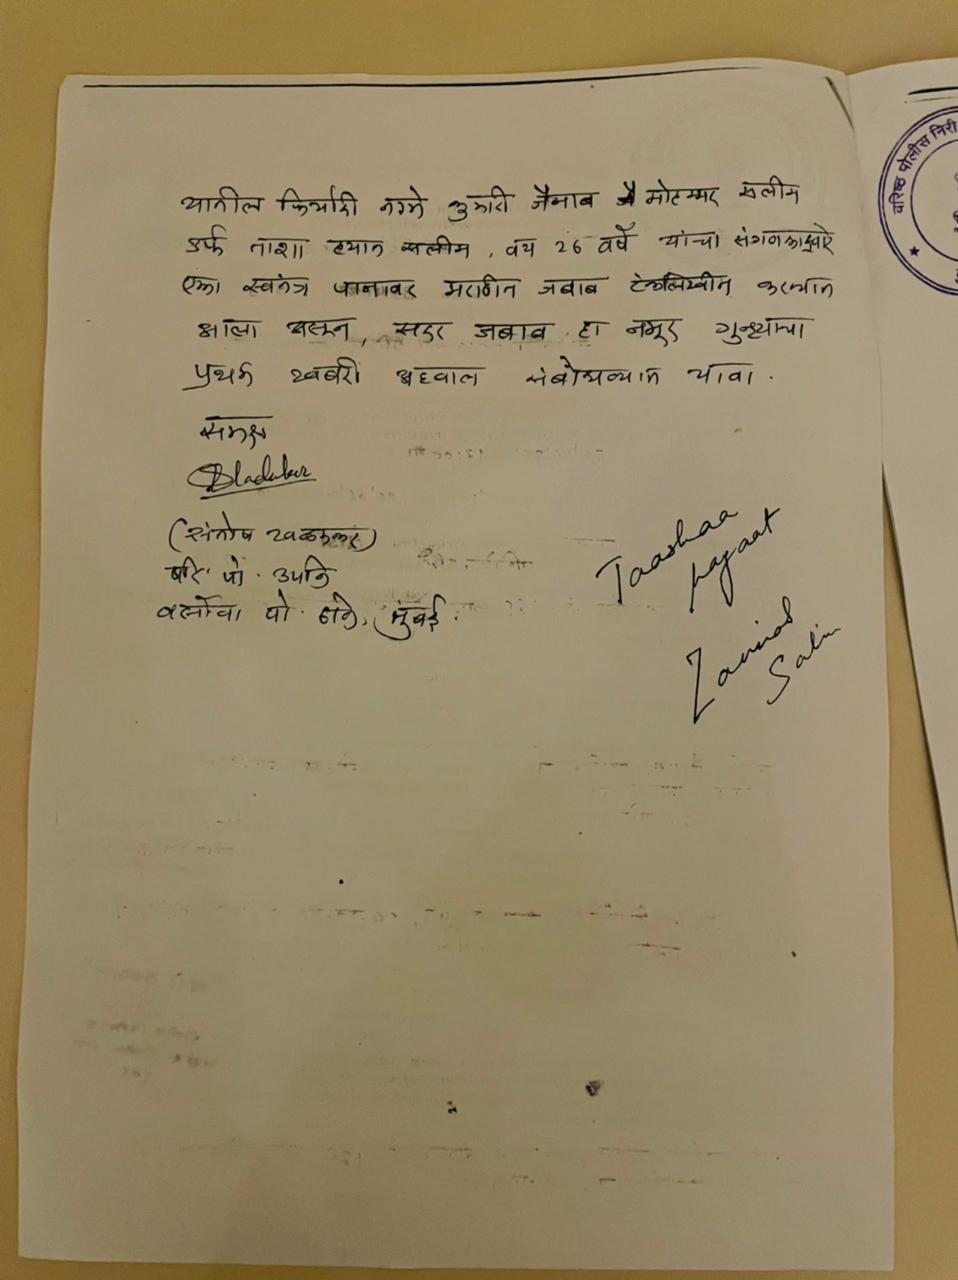 यातील फिर्यादी नामे कुमारी जैनाब मोहम्मद सलीम
उर्फ ताशा हयात सलीम, वय 26 वर्षे यांचा संगणकाद्वारे
एका स्वतंत्र पानावर मराठीत जबाब टंकलिखीत करण्यात
आला असून, सदर जबाब हा नमूद गुन्ह्याचा
प्रथम खबरी अहवाल संबोधण्यात यावा.
समक्ष
(संतोष
पो. उपनि
वर्सोवा पो. ठाणे, मुंबई.
Taashaa
Hayaat
Zainab
Salim
वरिष्ठ पोलीस निरी